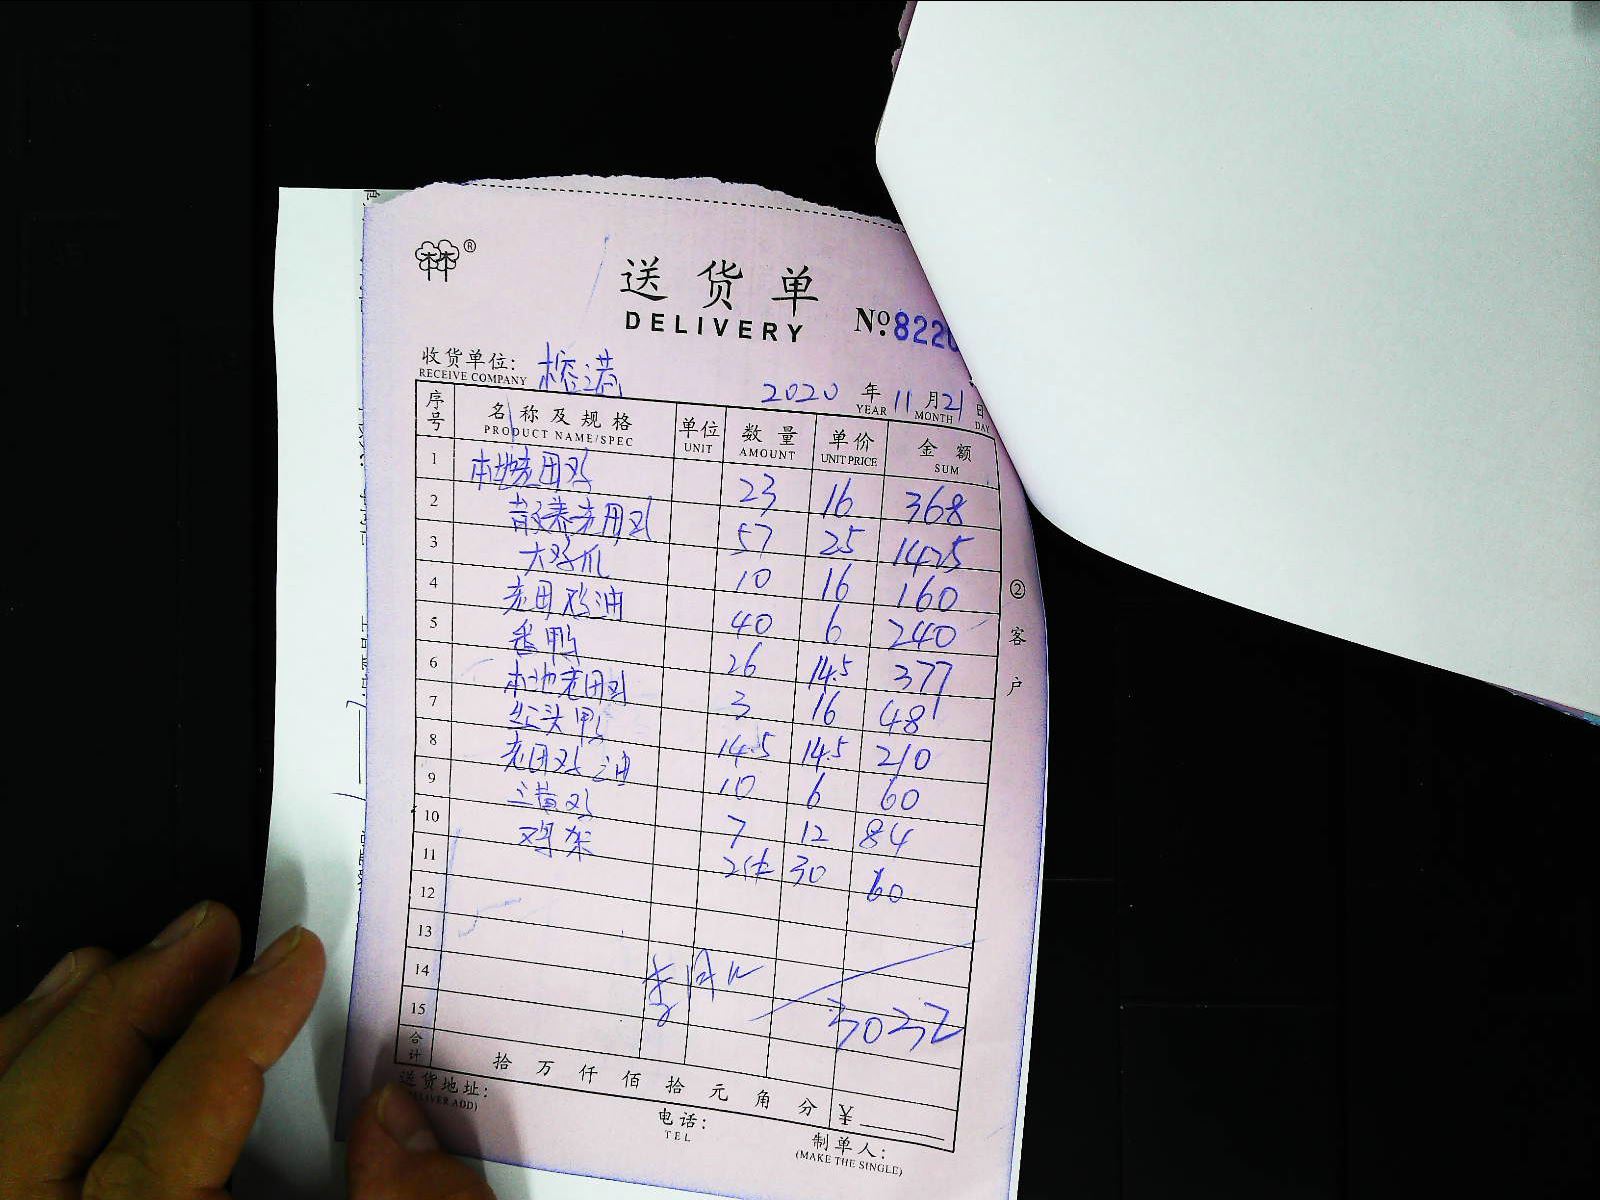 送货单
DELIVERY
№:8220
收货单位: 榕满
RECEIVE COMPANY
2020 年 11 月 21 日
YEAR MONTH DAY
序号 名称及规格 单位 数量 单价 金额
PRODUCT NAME/SPEC UNIT AMOUNT UNIT PRICE SUM
1 本地老田鸡 23 16 368
2 散养老田鸡 57 25 1425
3 大鸡爪 10 16 160
4 老田鸡油 40 6 240
5 番鸭 26 14.5 377
6 本地老田鸡 3 16 48
7 红头鸭 14.5 14.5 210
8 老田鸡油 10 6 60
9 三黄鸡 7 12 84
10 鸡架 2件 30 60
11
12
13
14
15 3032
合计 拾 万 仟 佰 拾 元 角 分 ¥
送货地址:
DELIVER ADD)
电话:
TEL
制单人:
(MAKE THE SINGLE)
②客户